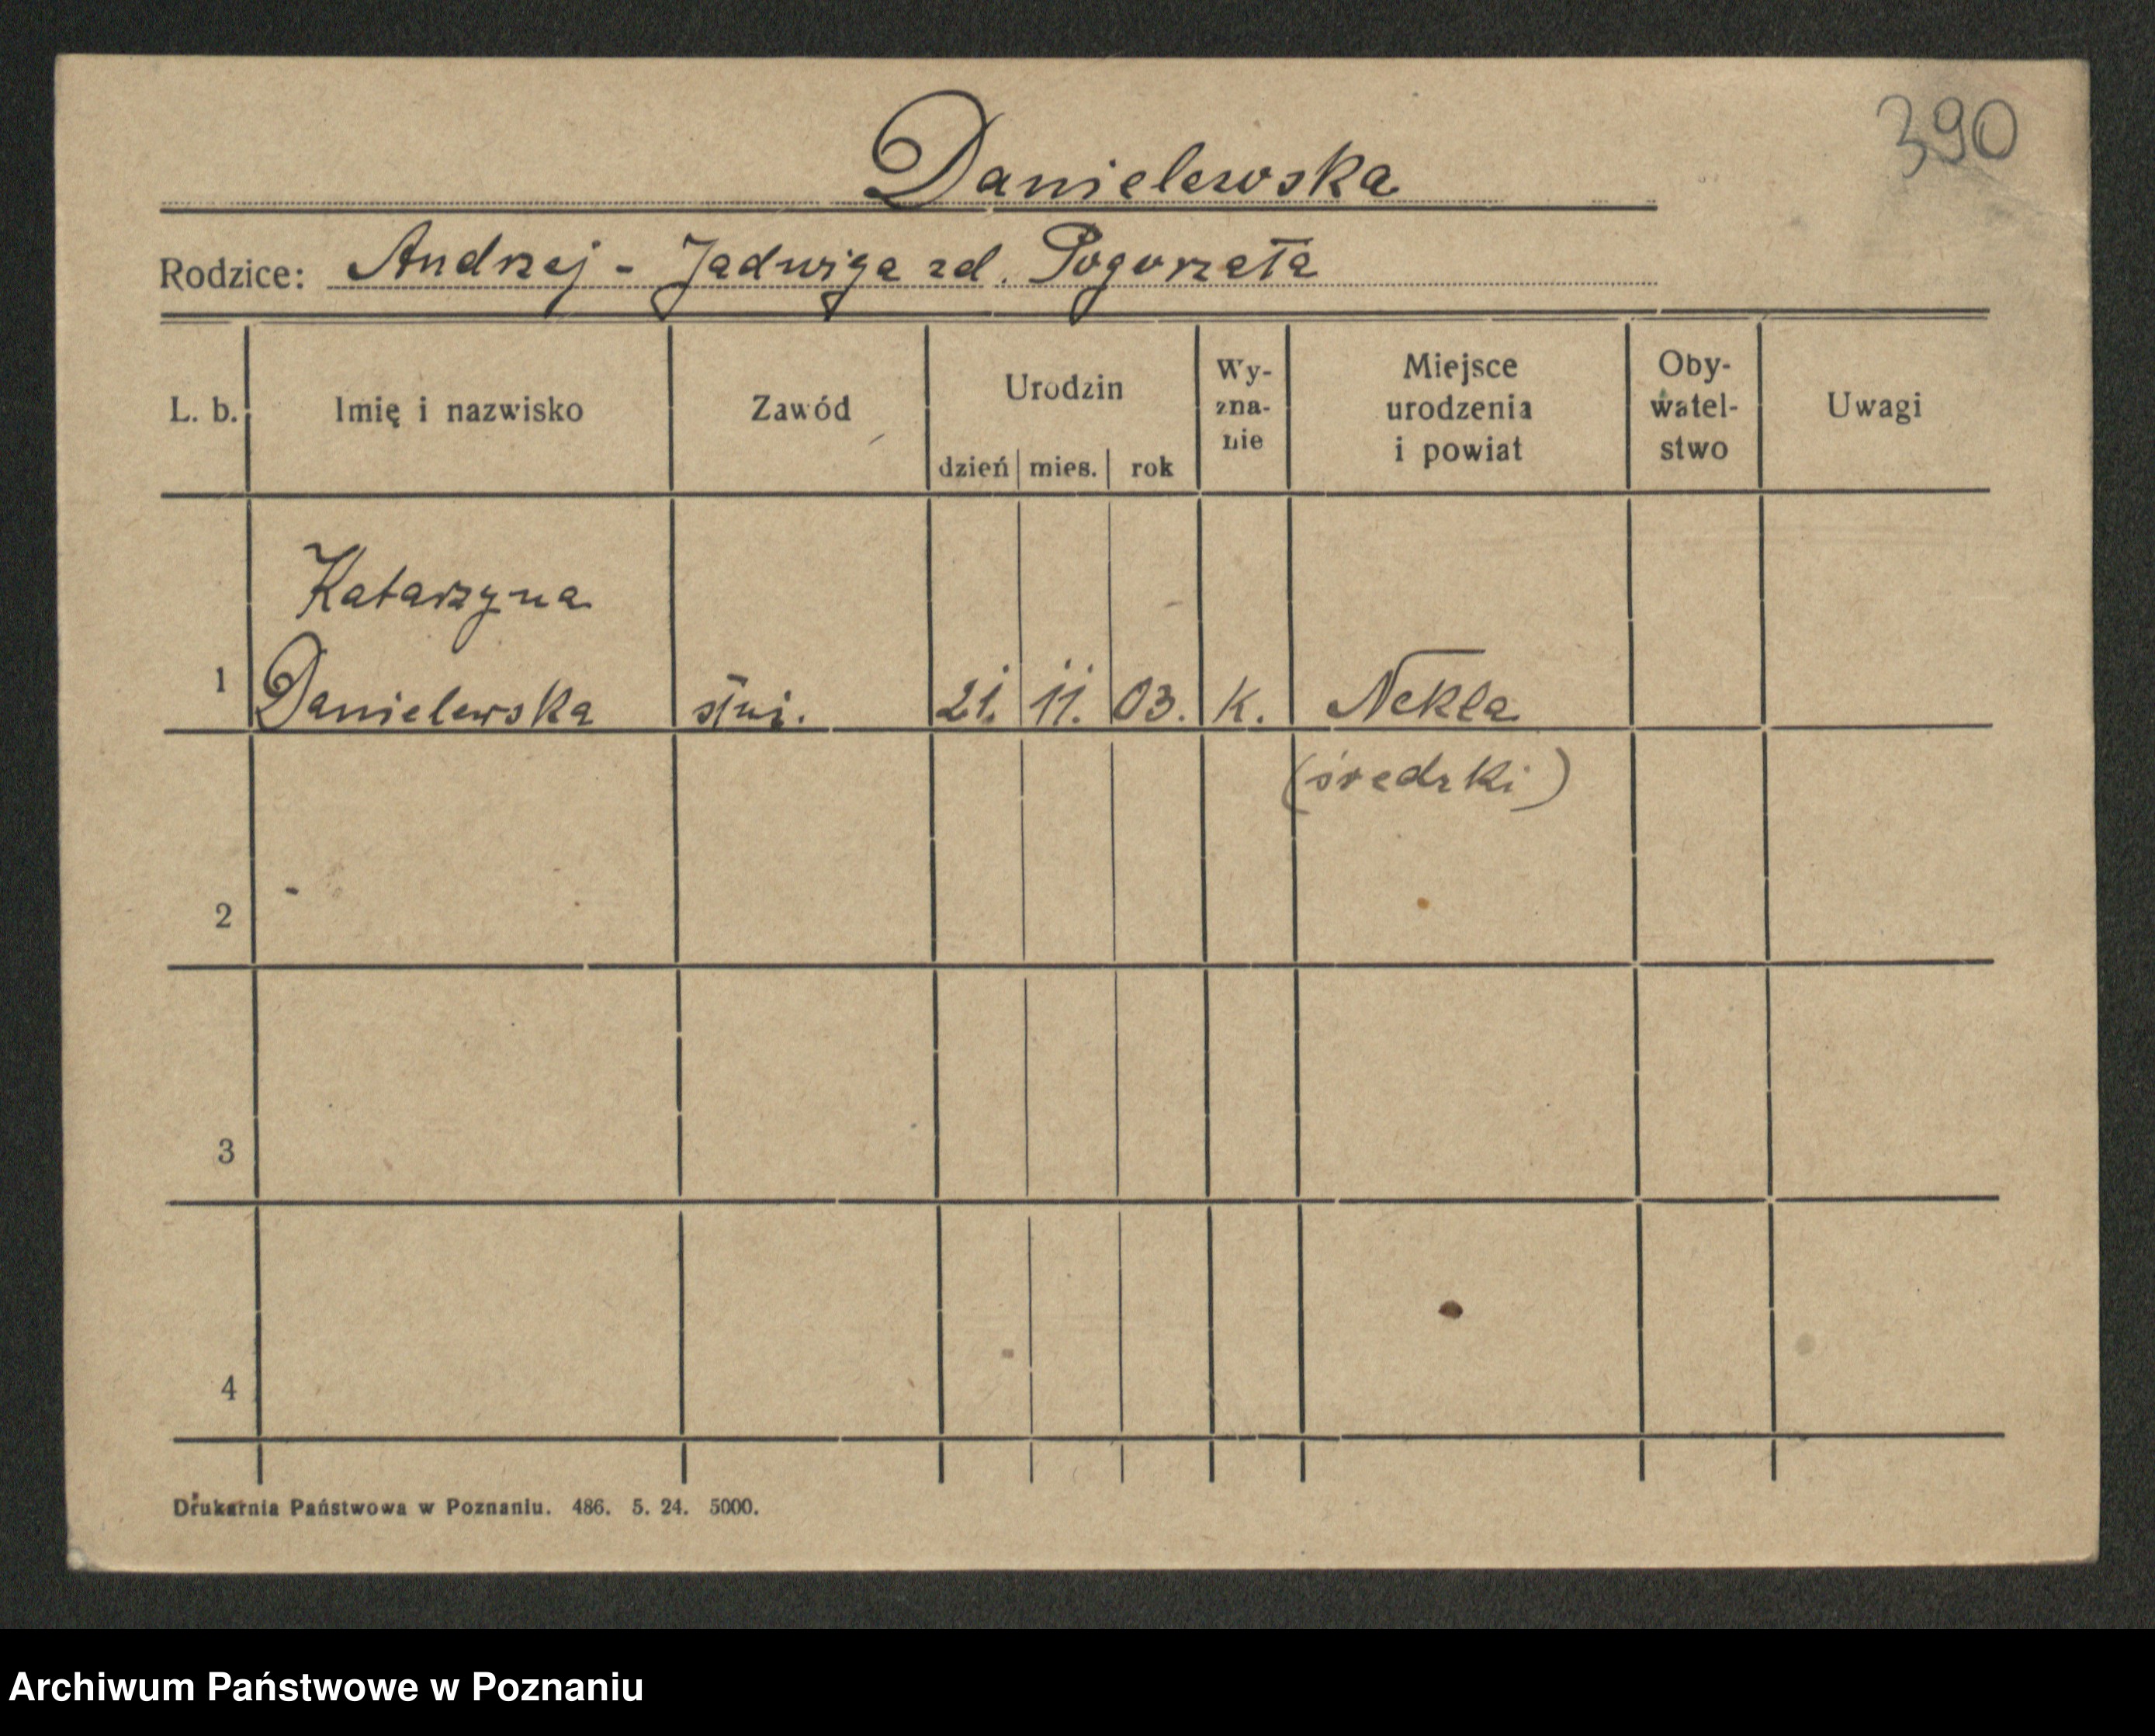 390
Danielewska
Rodzice: Andrzej - Jadwiga zd. Pogorzała
L. b. Imię i nazwisko Zawód Urodzin dzień mies. rok Wy-zna-nie Miejsce urodzenia i powiat Oby-watel-stwo Uwagi
Katarzyna
1 Danielewska służ. 21. 11. 03. k. Nekla
(średzki)
2
3
4
Drukarnia Państwowa w Poznaniu. 486. 5. 24. 5000.
Archiwum Państwowe w Poznaniu